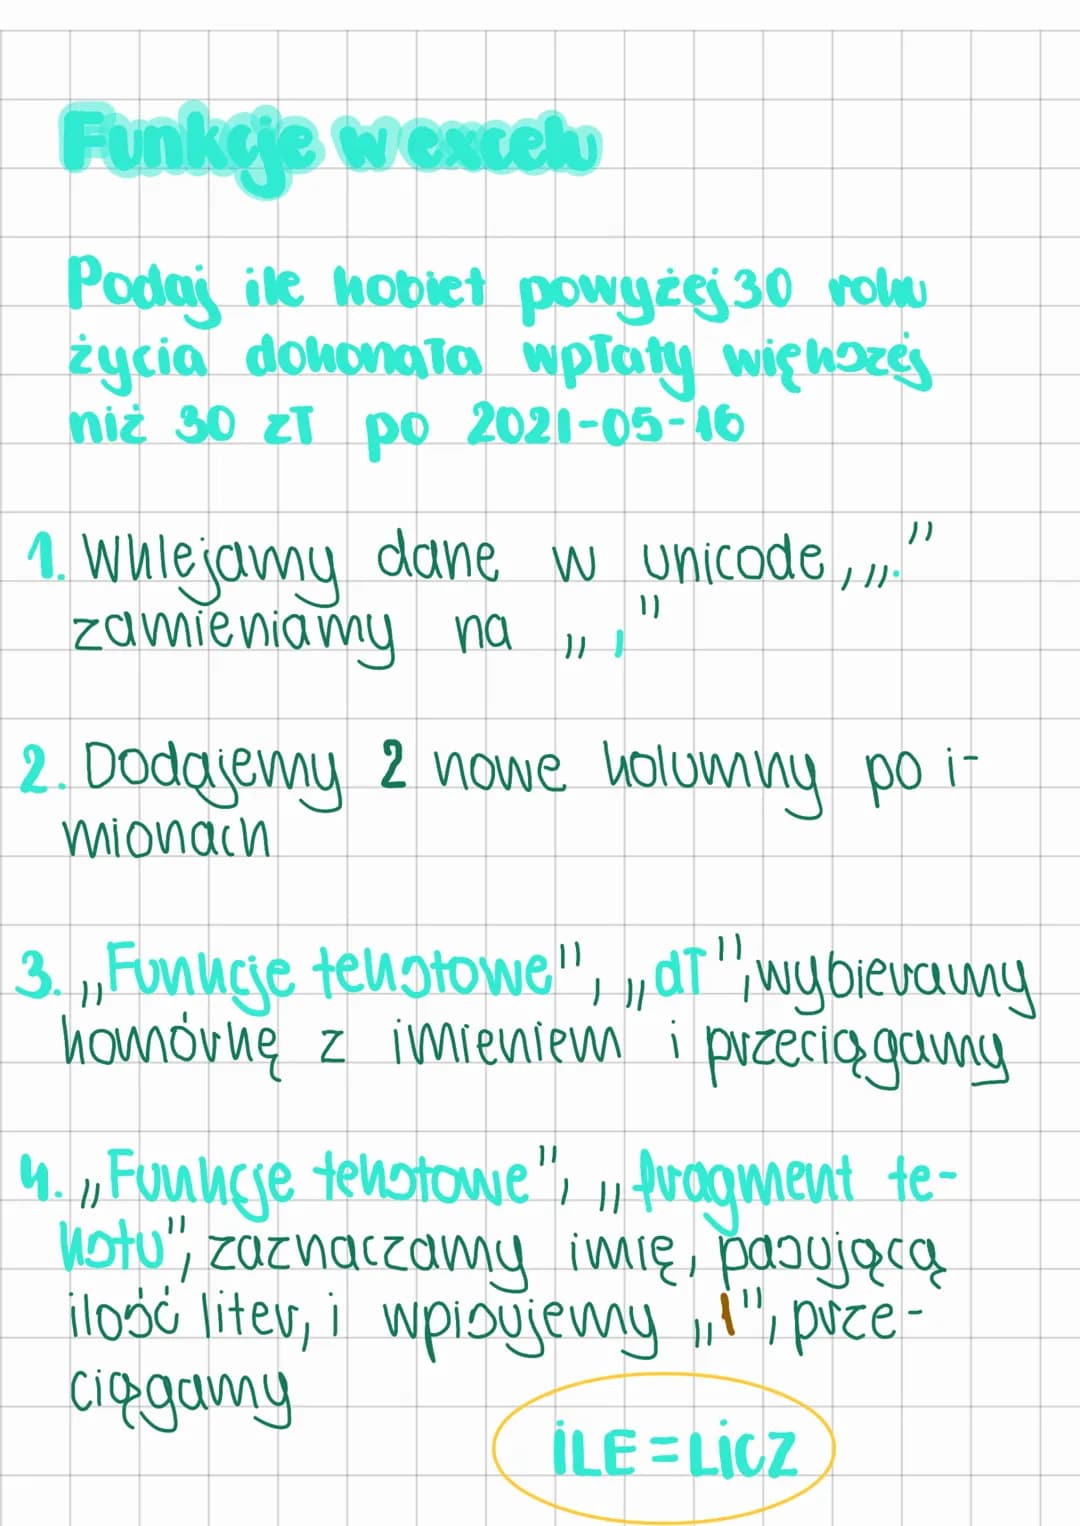 Funkcje w excelu
Podaj ile kobiet powyżej 30 roku
życia dokonała wpłaty większej
niż 30 zł po 2021-05-16
1. Wklejamy dane w unicode, „."
zamieniamy na „,"
2. Dodajemy 2 nowe kolumny po i-
mionach
3. „Funkcje tekstowe", „dł", wybieramy
komórkę z imieniem i przeciągamy
4. „Funkcje tekstowe", „fragment te-
kstu", zaznaczamy imię, pasującą
ilość liter, i wpisujemy „1", prze-
ciągamy
ILE = LICZ